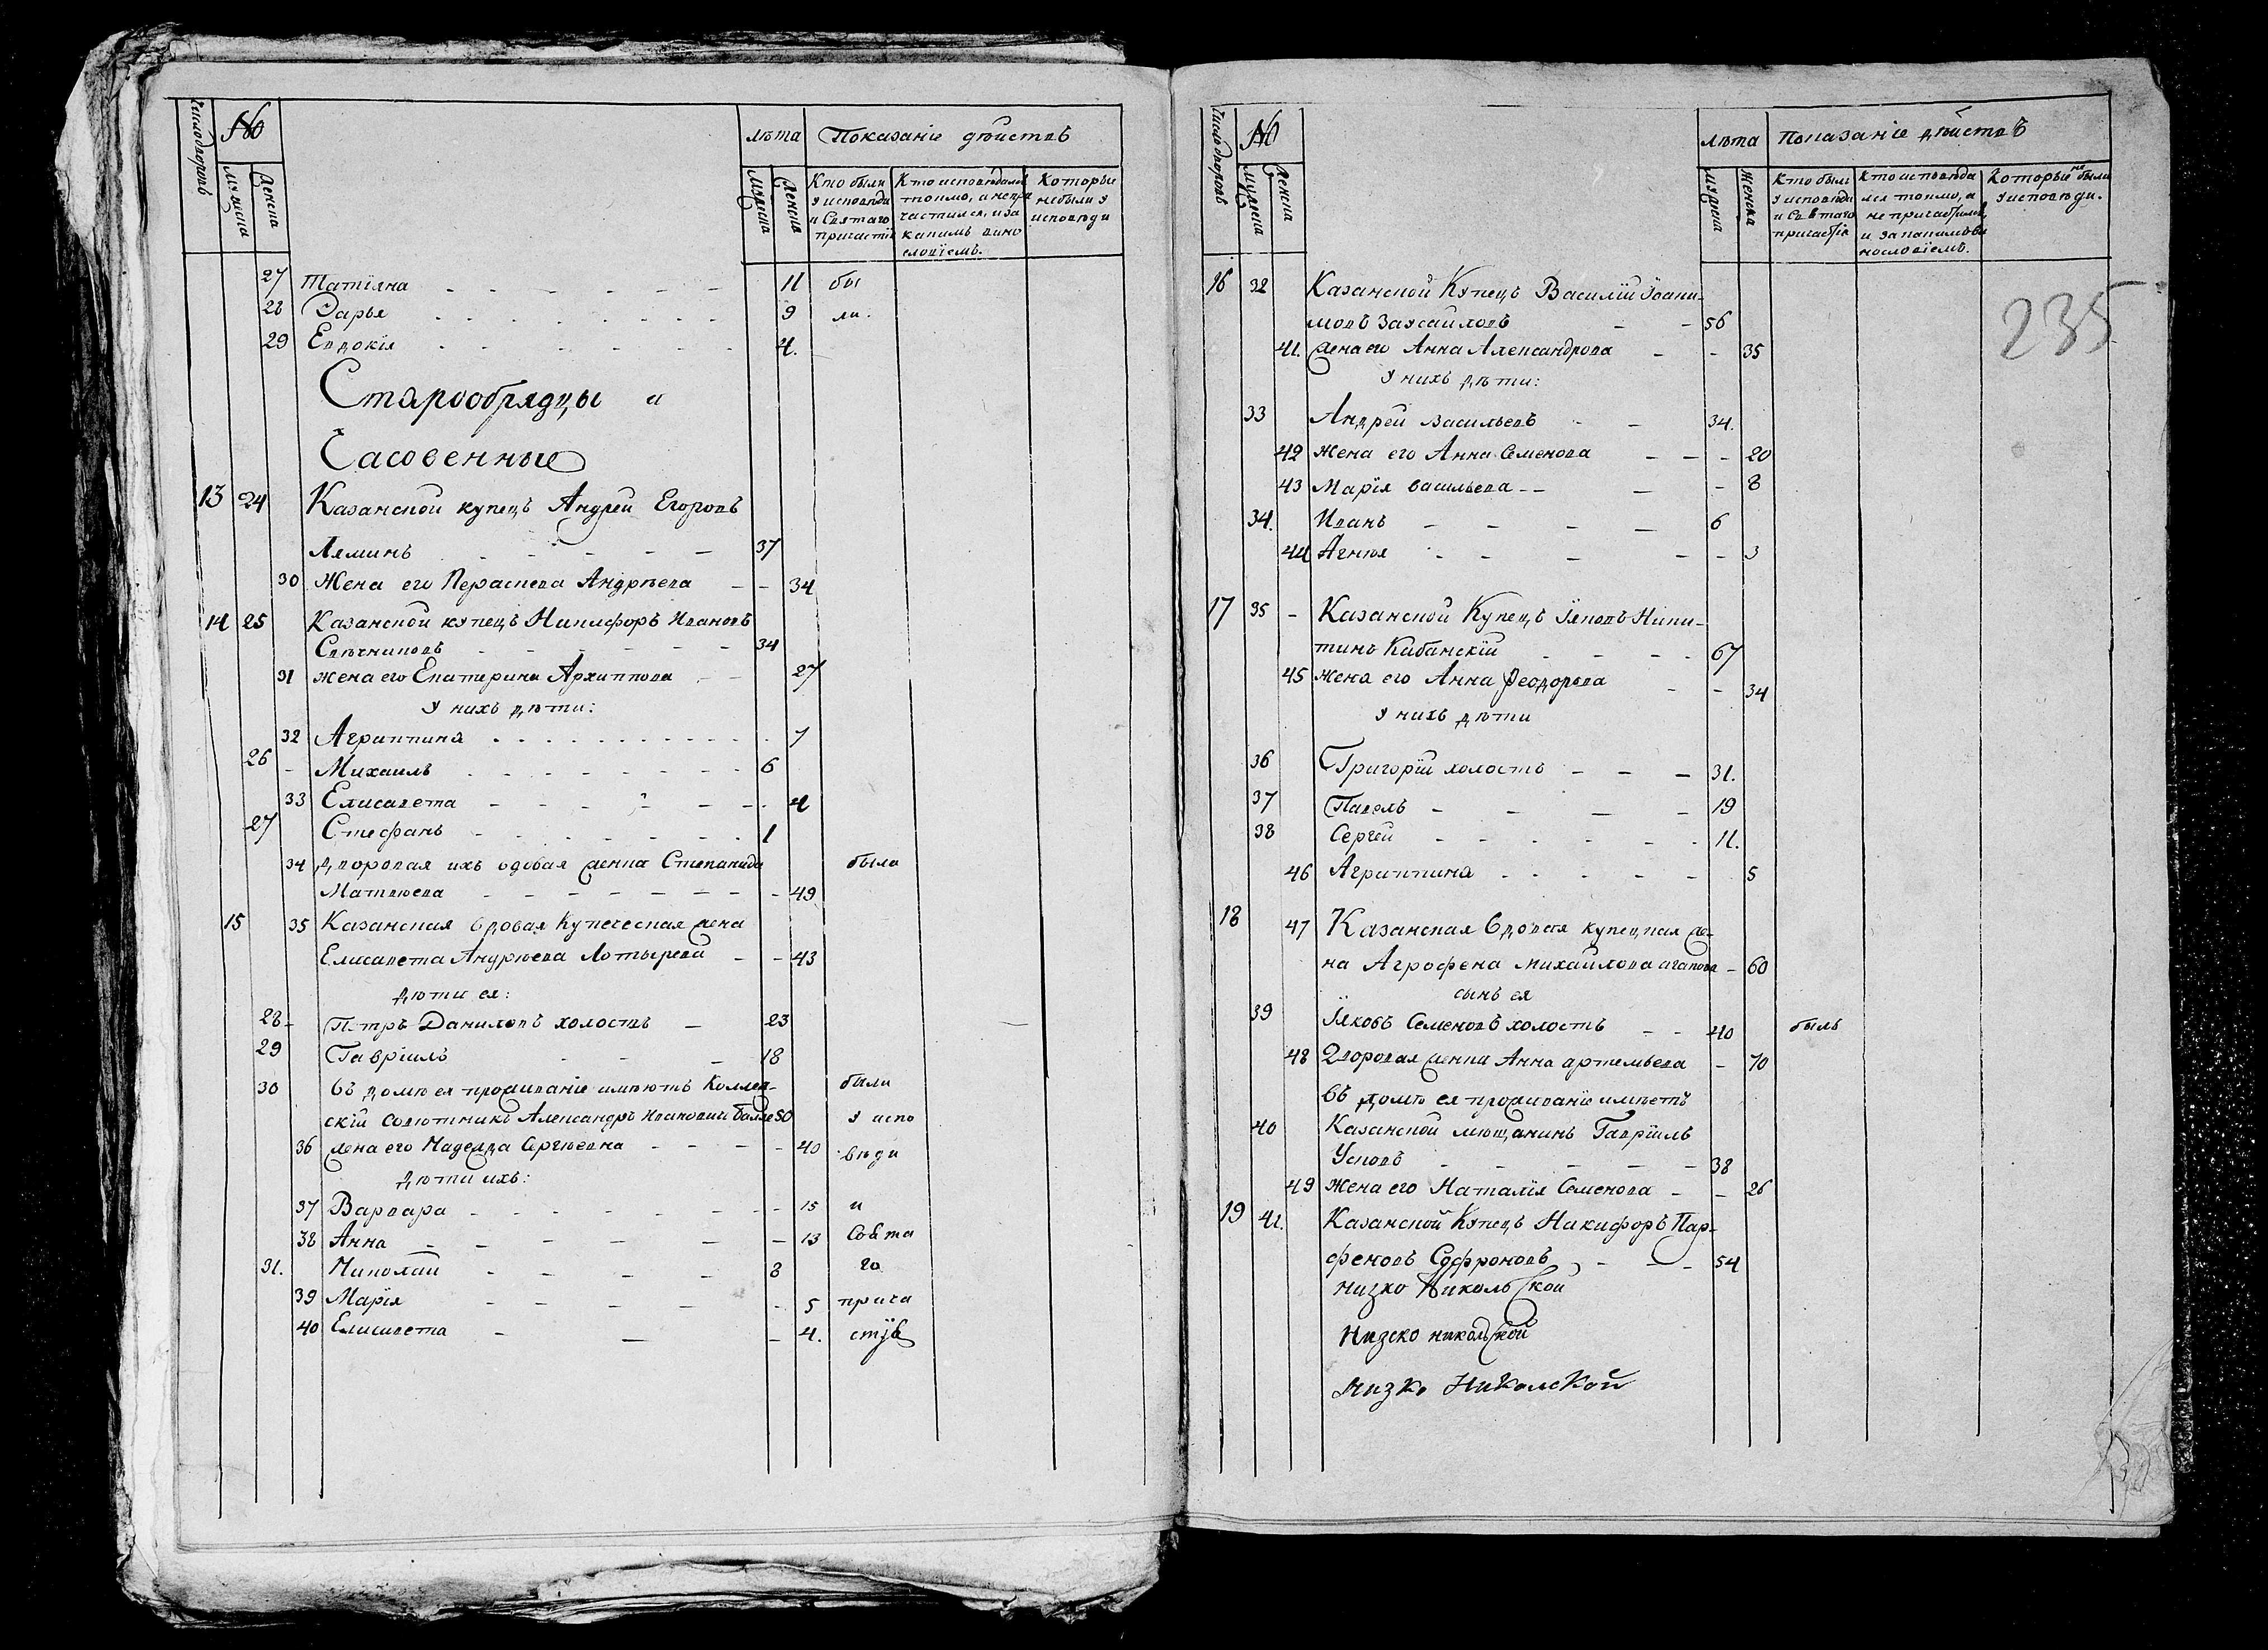 Число дворовъ № Мужеска Женска лѣта Мужеска Женска Показаніе дѣйствъ
Кто были у исповѣди и Святаго причастія
Кто исповѣдался токмо, а не причастился, и за какимъ виномъ
словіемъ.
Которые не были у исповѣди
27 Татіяна - - - 11 бы
28 Дарья - - - 9 ли.
29 Евдокія - - - 4.
Старообрядцы и
Часовенные
13 24 Казанской купецъ Андрей Егоровъ
Ляминъ - - - 37
30 Жена его Пераскева Андрѣева - - 34
14 25 Казанской купецъ Никифоръ Ивановъ
Свѣчниковъ - - - 34
31 жена его Екатерина Архиппова - - 27
у нихъ дѣти:
32 Агриппина - - - 7
26 - Михаилъ - - - 6
33 Елисавета - - - 4
27 Стефанъ - - - 1
34 дворовая ихъ вдовая женка Степанида была
Матвѣева - - - 49
15 35 Казанская вдовая Купеческая жена
Елисавета Андрѣева Лотырева - - 43
дѣти ея:
28 - Петръ Даниловъ холостъ - 23
29 Гавріилъ - - - 18
30 въ домѣ ея проживаніе имѣютъ Коллеж- были
скій совѣтникъ Александръ Ивановичь 50 у испо
36 жена его Надежда Сергѣевна - - - 40 вѣди
дѣти ихъ:
37 Варвара - - - 15 и
38 Анна - - - 13 Свята
31. Николай - - - 8 го
39 Марія - - - 5 прича
40 Елисавета - - - 4. стія
Число дворовъ № Мужеска Женска лѣта Мужеска Женска Показаніе дѣйствъ
Кто былъ у исповѣди и Святаго причастія
Кто исповѣдался токмо, а не причастился, и за какимъ винословіемъ.
Которые не были у исповѣди.
235
16 32 Казанской Купецъ Василій Іоаки-
мовъ Заусайловъ - - 56
41. жена его Анна Александрова - - 35
у нихъ дѣти:
33 Андрей Васильевъ - - 34.
42 жена его Анна Семенова - - - 20
43 Марія васильева - - - - 8
34. Иванъ - - - - 6
44 Агнія - - - - - 3
17 35 - Казанской Купецъ Іяковъ Ники-
тинъ Кабанскій - - - - 67
45 жена его Анна Ѳеодорова - - 34
у нихъ дѣти
36 Григорій холостъ - - - 31.
37 Павелъ - - - - 19
38 Сергей - - - - - - 11.
46 Агриппина - - - - - 5
18 47 Казанская вдовая купецкая же-
на Агрофена михайлова агапова - 60
сынъ ея
39 Іяковъ Семеновъ холостъ - - 40 былъ
48 Дворовая женка Анна артемьева - 70
въ домѣ ея проживаніе имѣетъ
40 Казанской мѣщанинъ Гавріилъ
Усковъ - - - - - 38
49 жена его Наталія Семенова - - 26
19 41. Казанской Купецъ Никифоръ Пар-
феновъ Софроновъ - - - 54
низко Никольской
Низско никольской
низко Николской